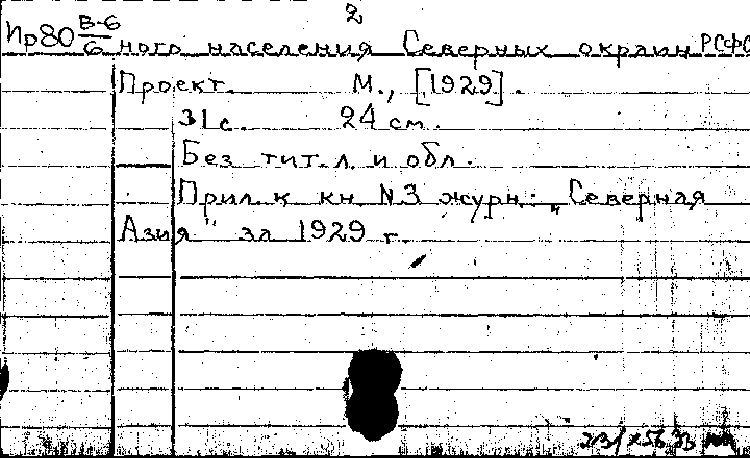 2
Пр80 В-6/6 ного населения Северных окраин РСФС
Проект. М., [1929].
31 с. 24 см.
Без тит. л. и обл.
Прил. к кн. N3 журн.: „Северная
Азия" за 1929 г.